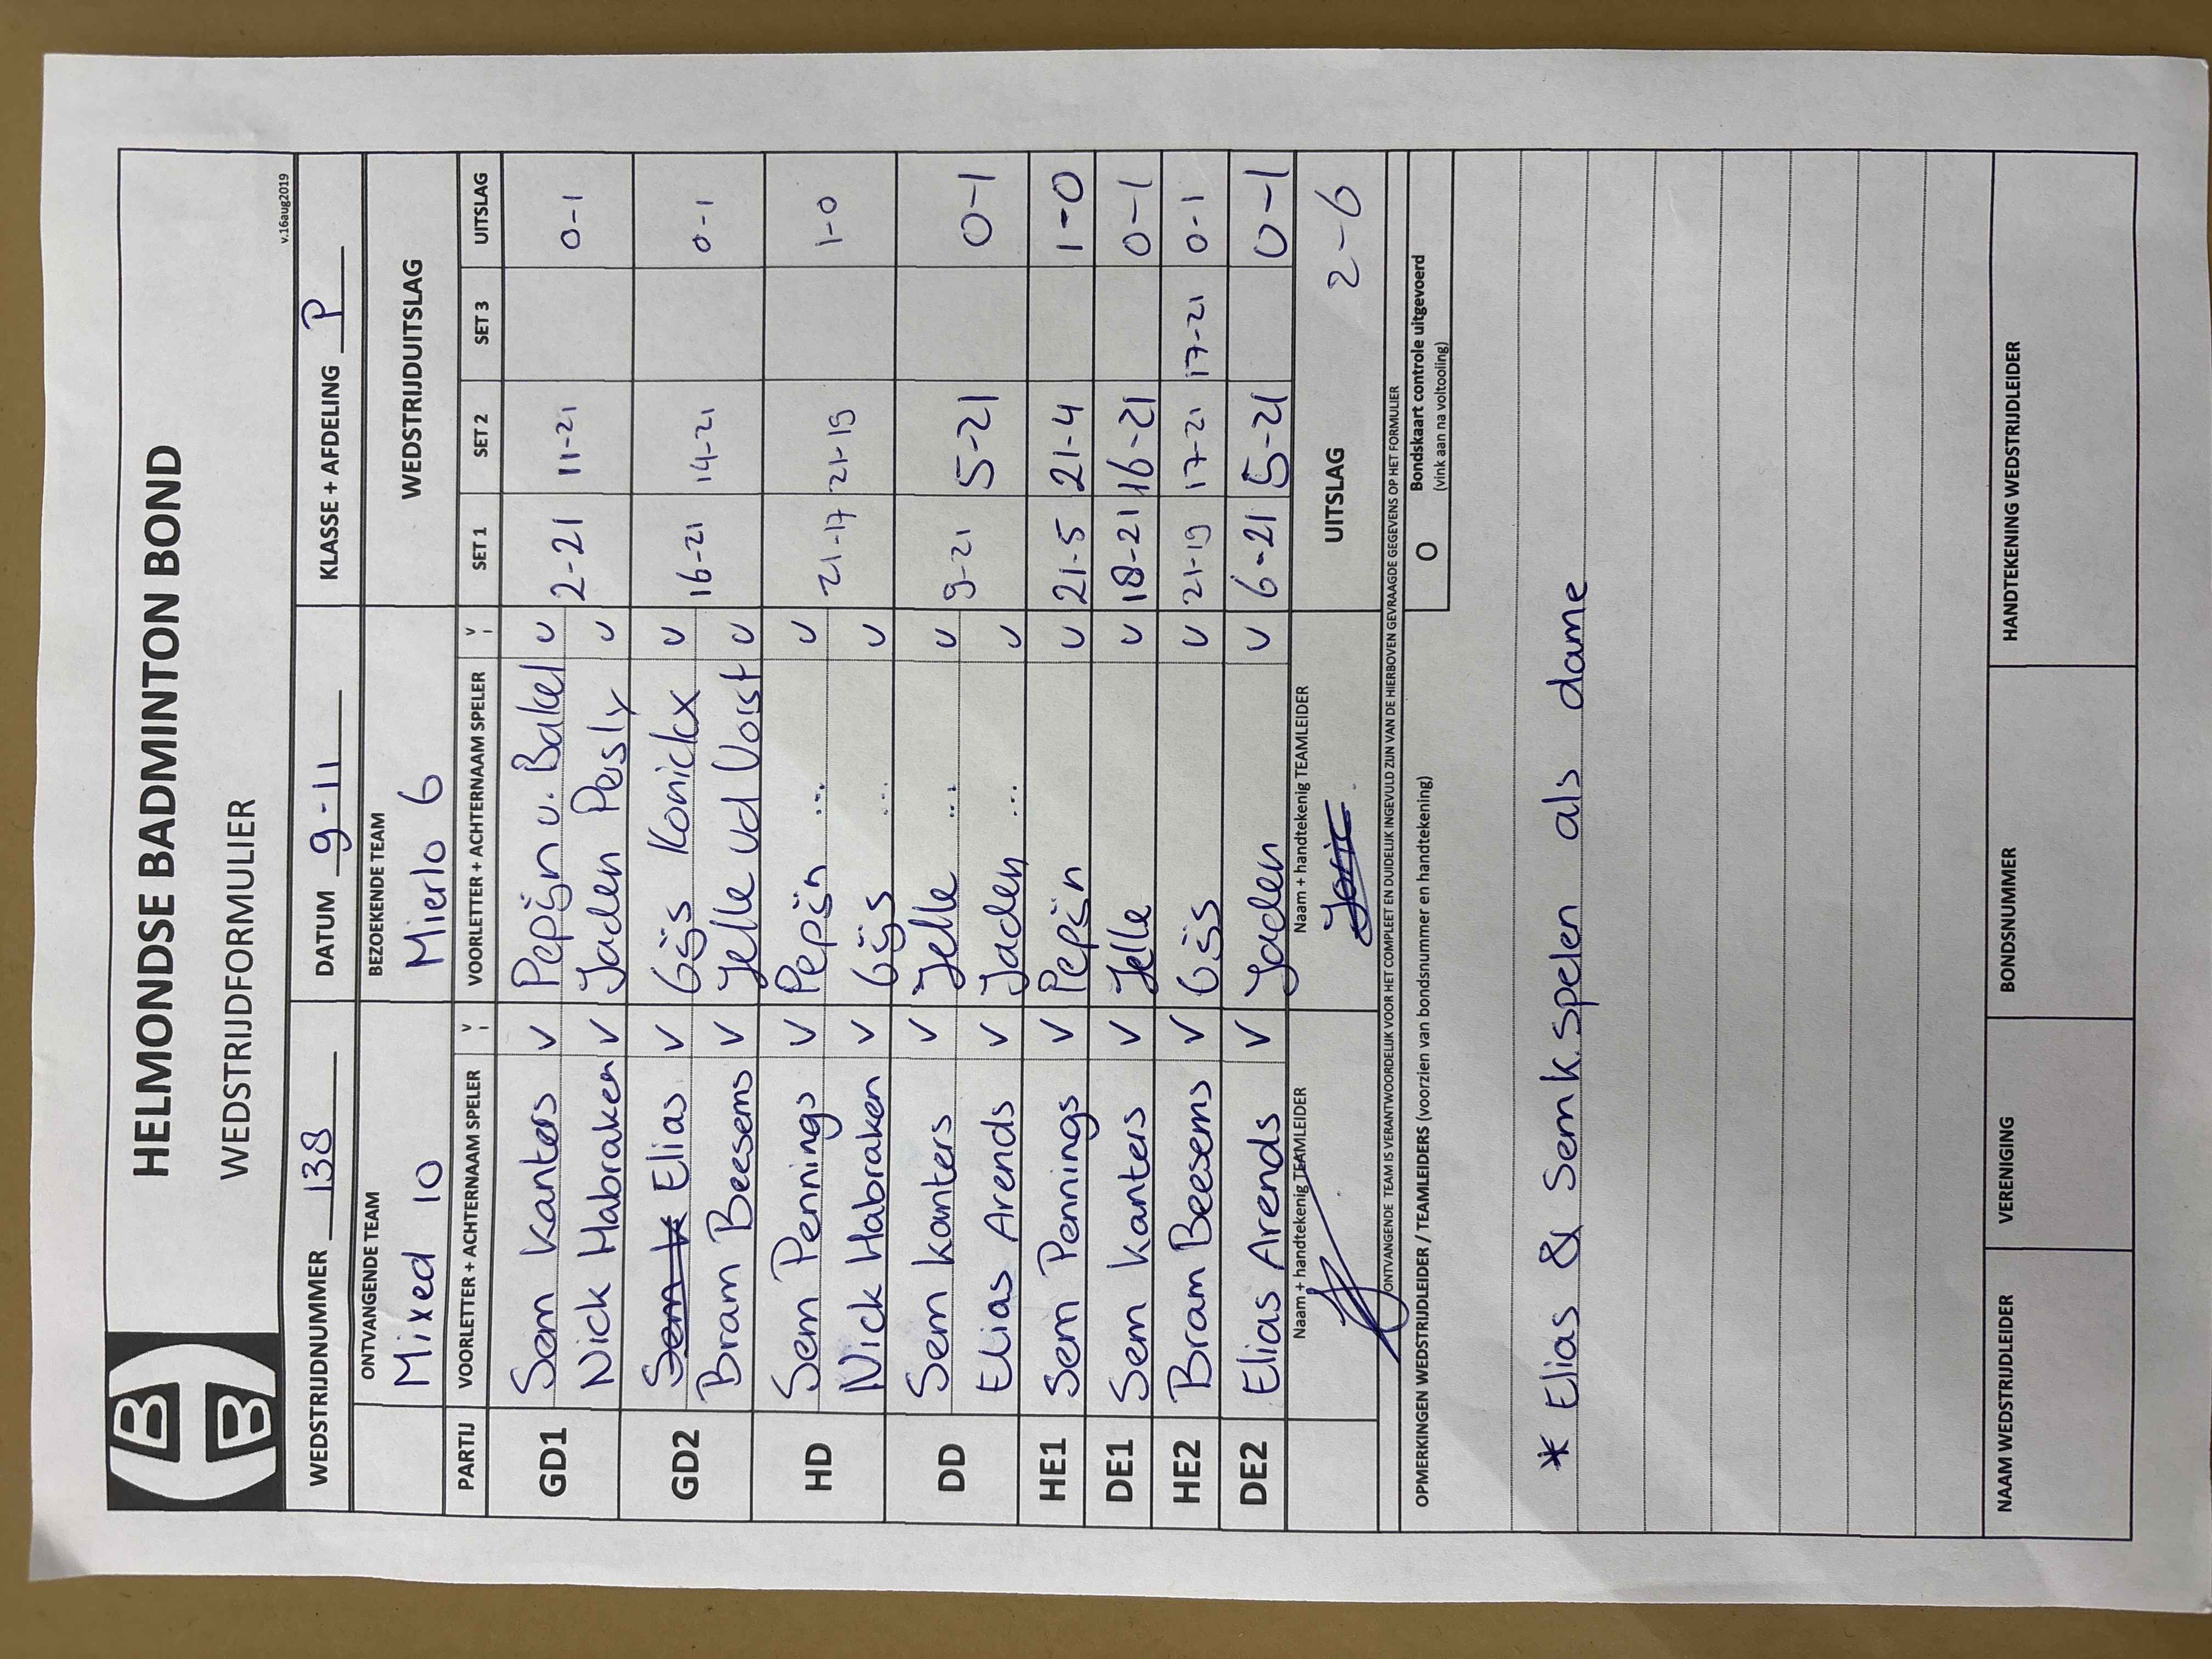 HELMONDSE BADMINTON BOND
WEDSTRIJDFORMULIER
v.16aug2019
WEDSTRIJDNUMMER 138 DATUM 9-11 KLASSE + AFDELING P
ONTVANGENDE TEAM BEZOEKENDE TEAM WEDSTRIJDUITSLAG
Mixed 10 Mierlo 6
PARTIJ VOORLETTER + ACHTERNAAM SPELER V VOORLETTER + ACHTERNAAM SPELER V SET 1 SET 2 SET 3 UITSLAG
GD1 Sem Kanters V Pepijn v. Bakel V 2-21 11-21 0-1
Nick Habraken V Jaden Pesly V
GD2 Elias V Gijs Konickx V 16-21 14-21 0-1
Bram Beesems V Jelle vd Vorst V
HD Sem Pennings V Pepijn ... V 21-17 21-19 1-0
Nick Habraken V Gijs ... V
DD Sem Kanters V Jelle ... V 9-21 5-21 0-1
Elias Arends V Jaden ... V
HE1 Sem Pennings V Pepijn V 21-5 21-4 1-0
DE1 Sem Kanters V Jelle V 18-21 16-21 0-1
HE2 Bram Beesems V Gijs V 21-19 17-21 17-21 0-1
DE2 Elias Arends V Jaden V 6-21 5-21 0-1
Naam + handtekenig TEAMLEIDER Naam + handtekenig TEAMLEIDER UITSLAG 2-6
ONTVANGENDE TEAM IS VERANTWOORDELIJK VOOR HET COMPLEET EN DUIDELIJK INGEVULD ZIJN VAN DE HIERBOVEN GEVRAAGDE GEGEVENS OP HET FORMULIER
OPMERKINGEN WEDSTRIJDLEIDER / TEAMLEIDERS (voorzien van bondsnummer en handtekening) O Bondskaart controle uitgevoerd
(vink aan na voltooiing)
* Elias & Sem k. spelen als dame
NAAM WEDSTRIJDLEIDER VERENIGING BONDSNUMMER HANDTEKENING WEDSTRIJDLEIDER